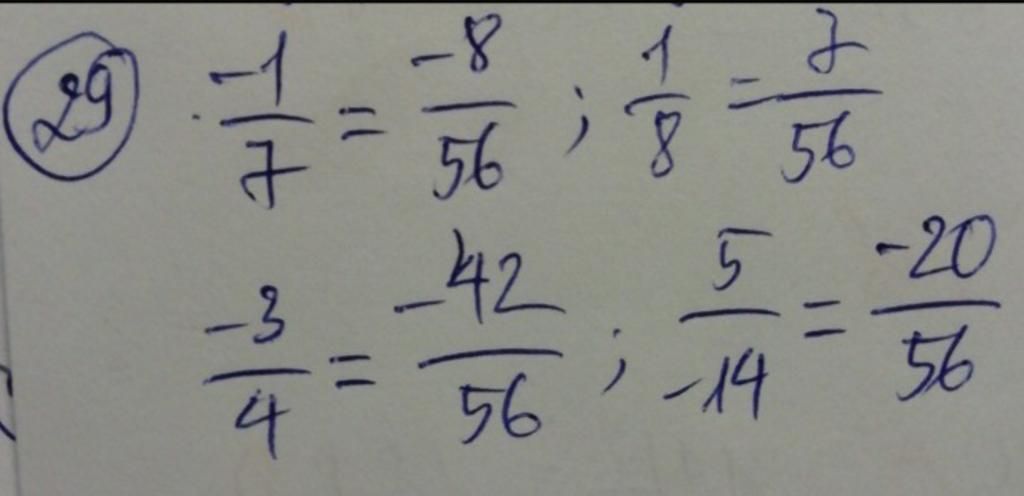 29 -1/7 = -8/56 ; 1/8 = 7/56
-3/4 = -42/56 ; 5/-14 = -20/56